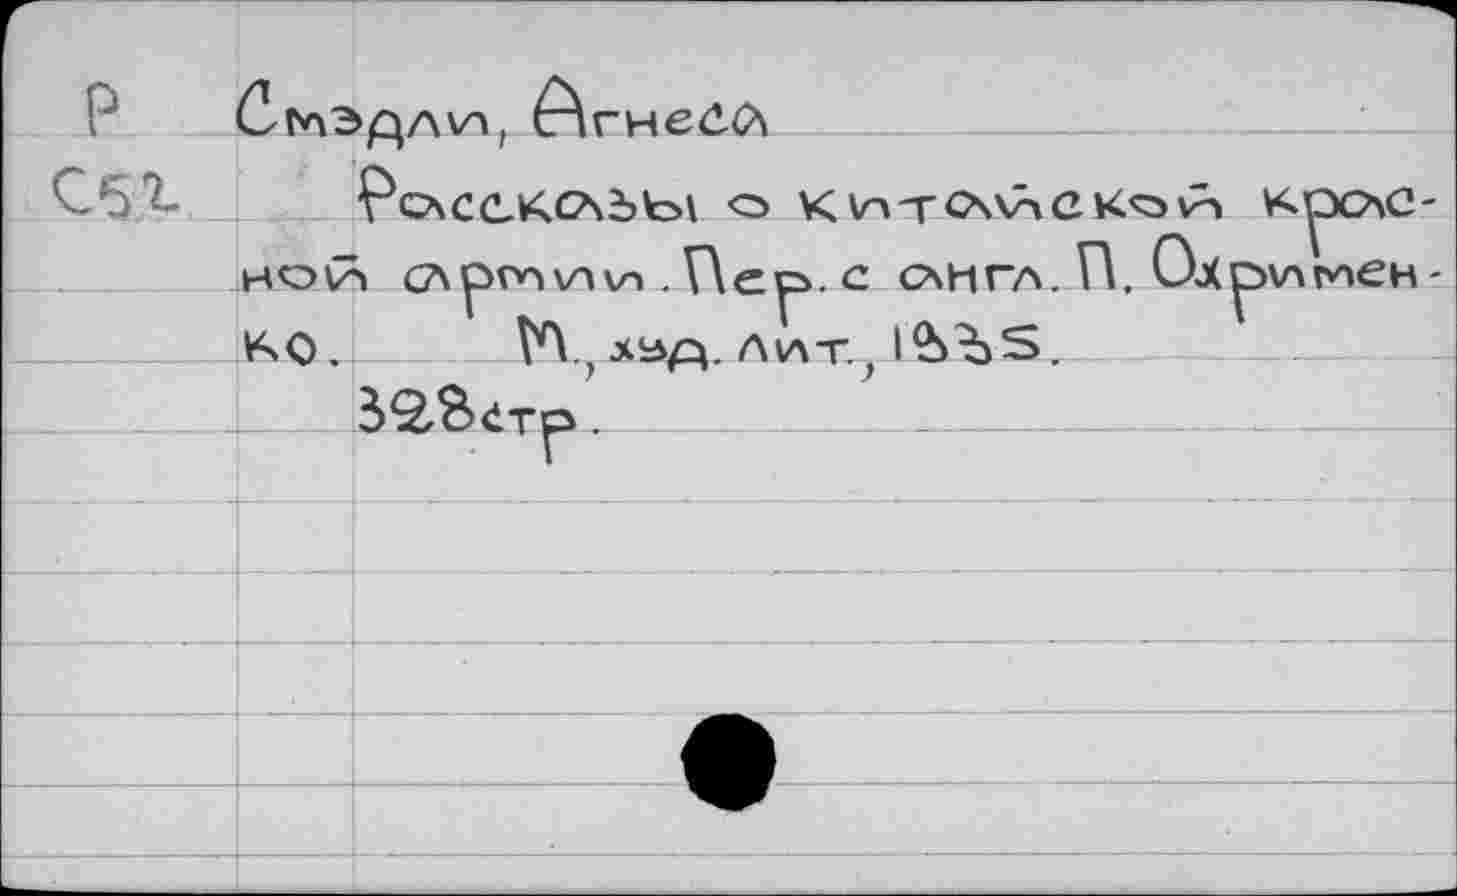 Р Смэдли, Агнесса
С52 Рассказы о китайской крас-
ной армии. Пер. с англ. П. Охримен-
ко. М., худ. лит., 1935.
328стр.